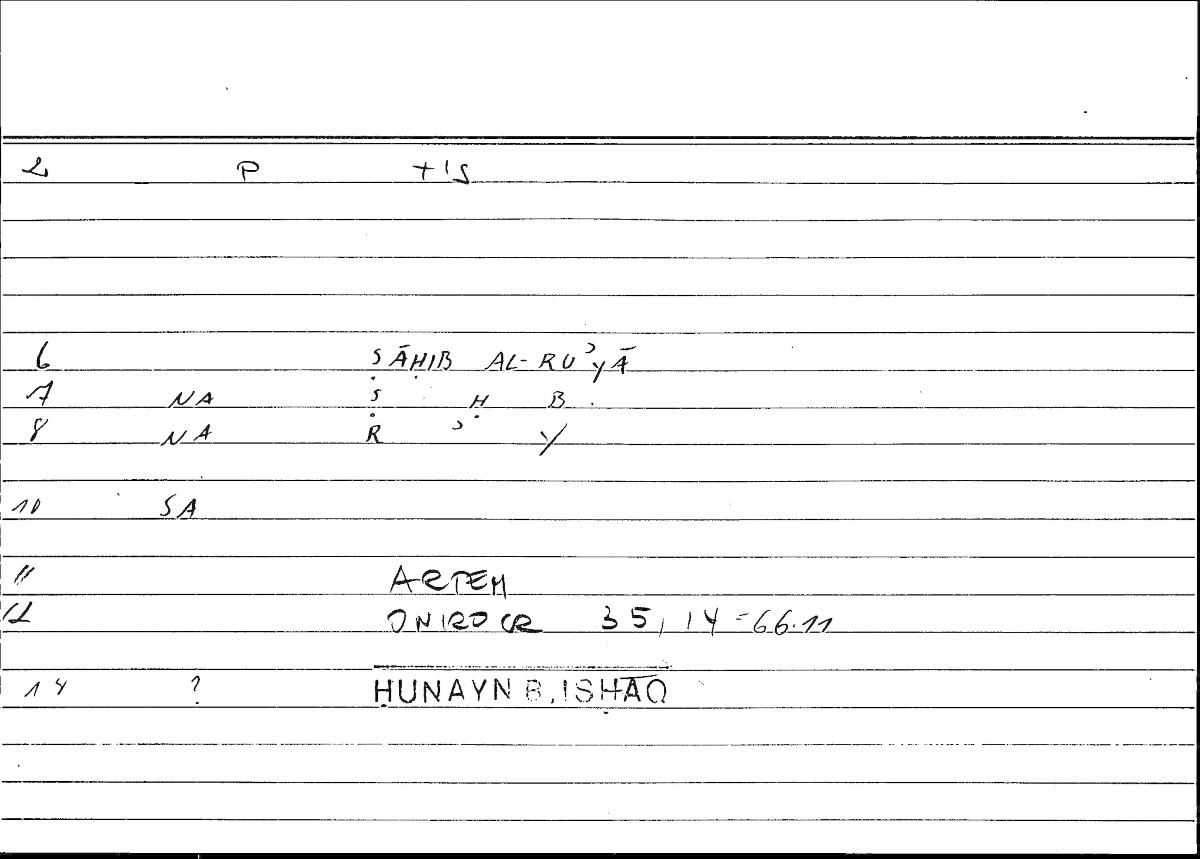 2 P +'S
6 ṢĀḤIB AL-RUʾYĀ
7 NA Ṣ Ḥ B
8 NA R ʾ Y
10 SA
11 ARTEM
12 ONIROCR 35,14=66.11
14 ? ḤUNAYN B. ISḤĀQ